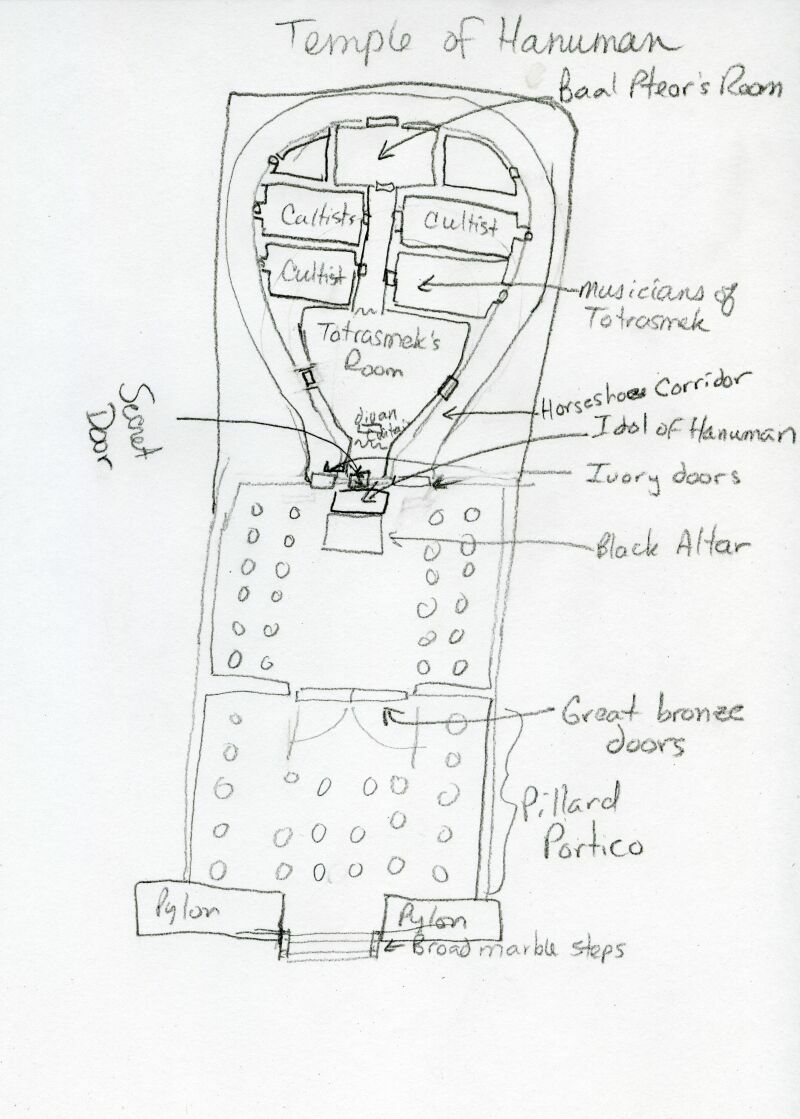 Temple of Hanuman
Baal Pteor's Room
Cultists
Cultist
Cultist
Musicians of
Totrasmek
Totrasmek's
Room
Horseshoe Corridor
divan
Secret
Door
Idol of Hanuman
Ivory doors
Black Altar
Great bronze
doors
Pillard
Portico
Pylon
Pylon
Broad marble steps